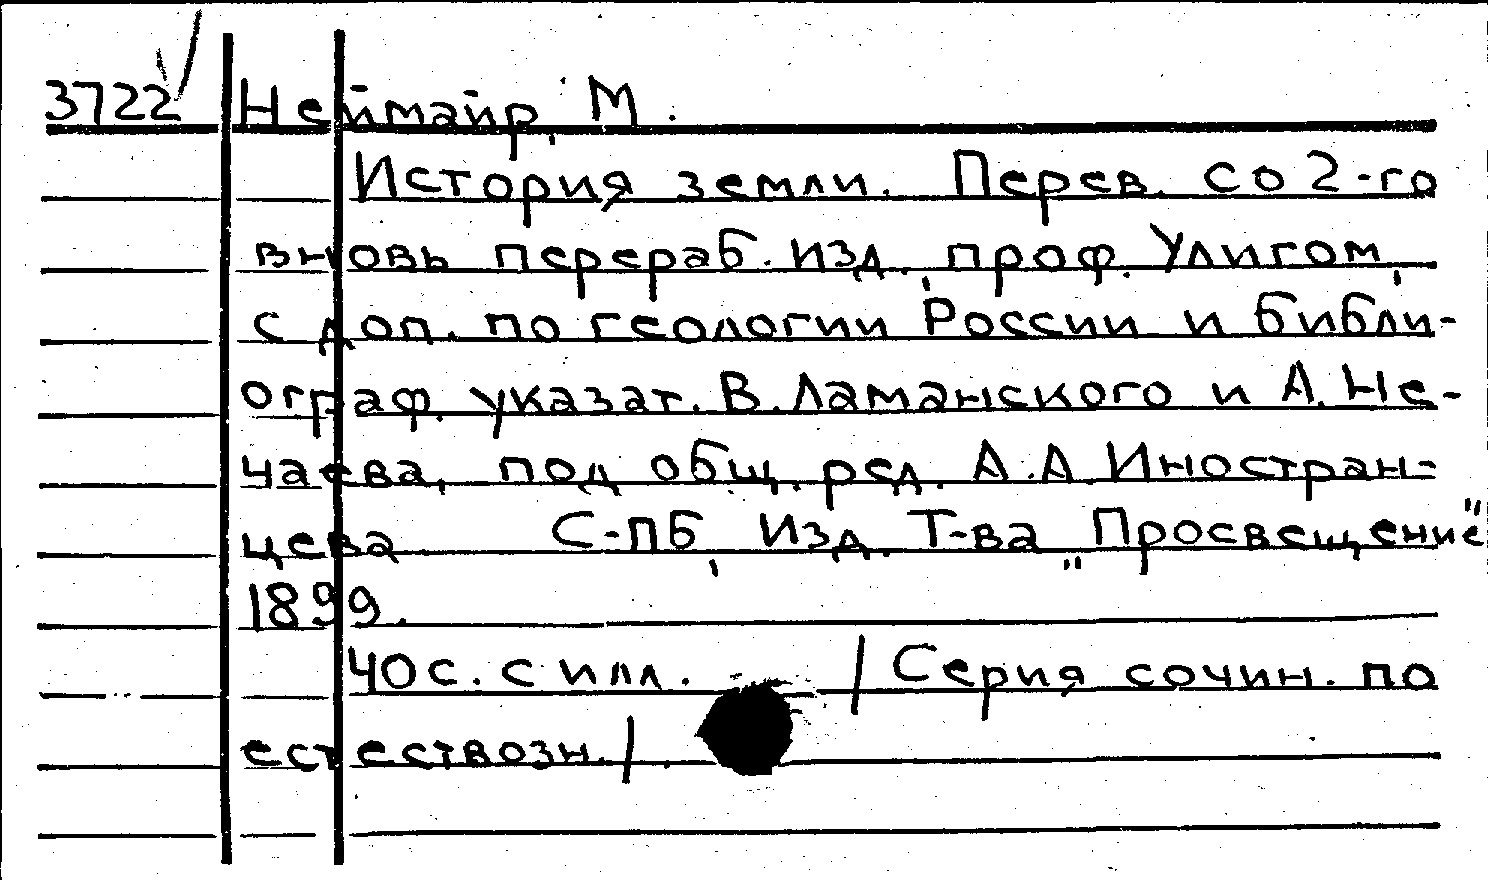 3722 Неймайр, М.
История земли. Перев. со 2-го
вновь перераб. изд., проф. Улигом,
с доп. по геологии России и библи-
ограф. указат. В. Ламанского и А. Не-
чаева, под общ. ред. А.А. Иностран-
цева С-ПБ, Изд. Т-ва „Просвещение"
1899.
40с. с илл. / Серия сочин. по
естествозн./.